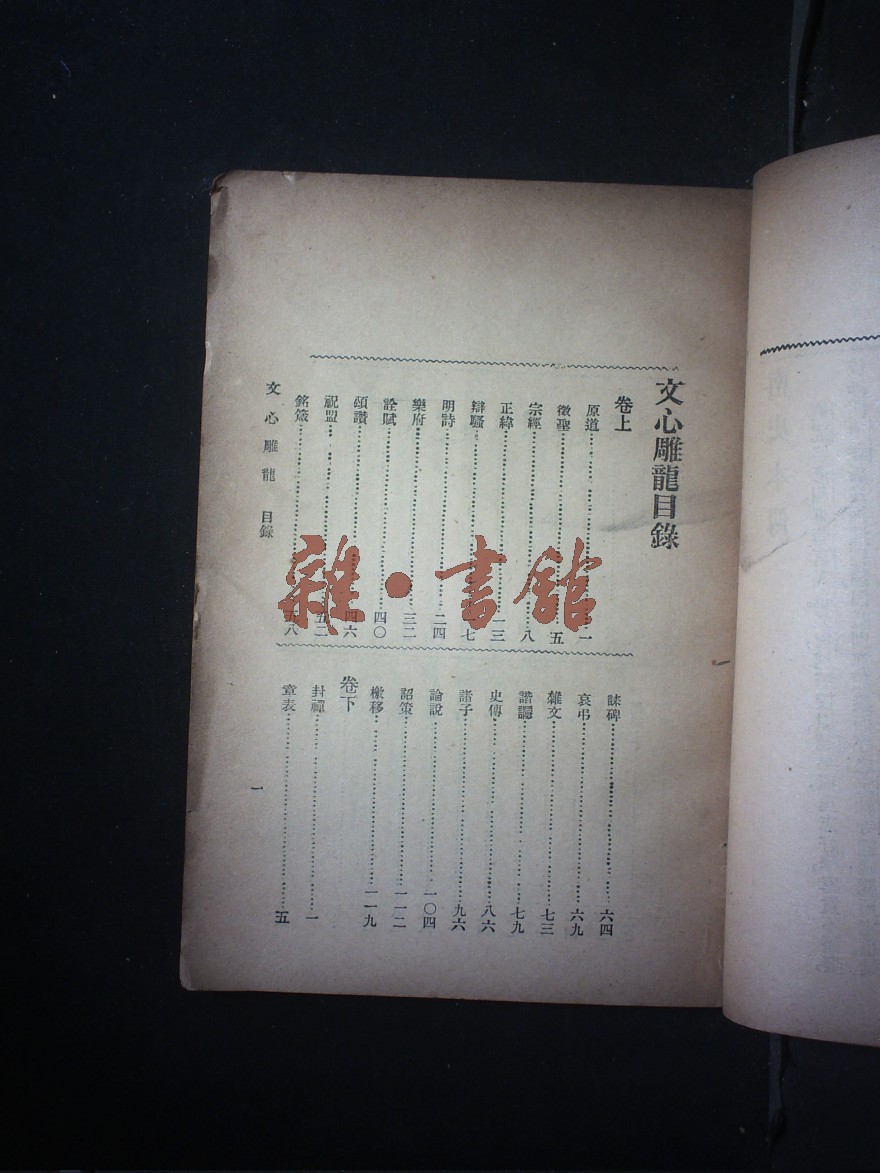 文心雕龍目錄
卷上
原道……一
徵聖……五
宗經……八
正緯……一三
辯騷……七
明詩……二四
樂府……三二
詮賦……四〇
頌讚……四六
祝盟……五二
銘箴……五八
誄碑……六四
哀弔……六九
雜文……七三
諧讔……七九
史傳……八六
諸子……九六
論說……一〇四
詔策……一一二
檄移……一一九
卷下
封禪……一
章表……五
文心雕龍 目錄
一
雜·書館